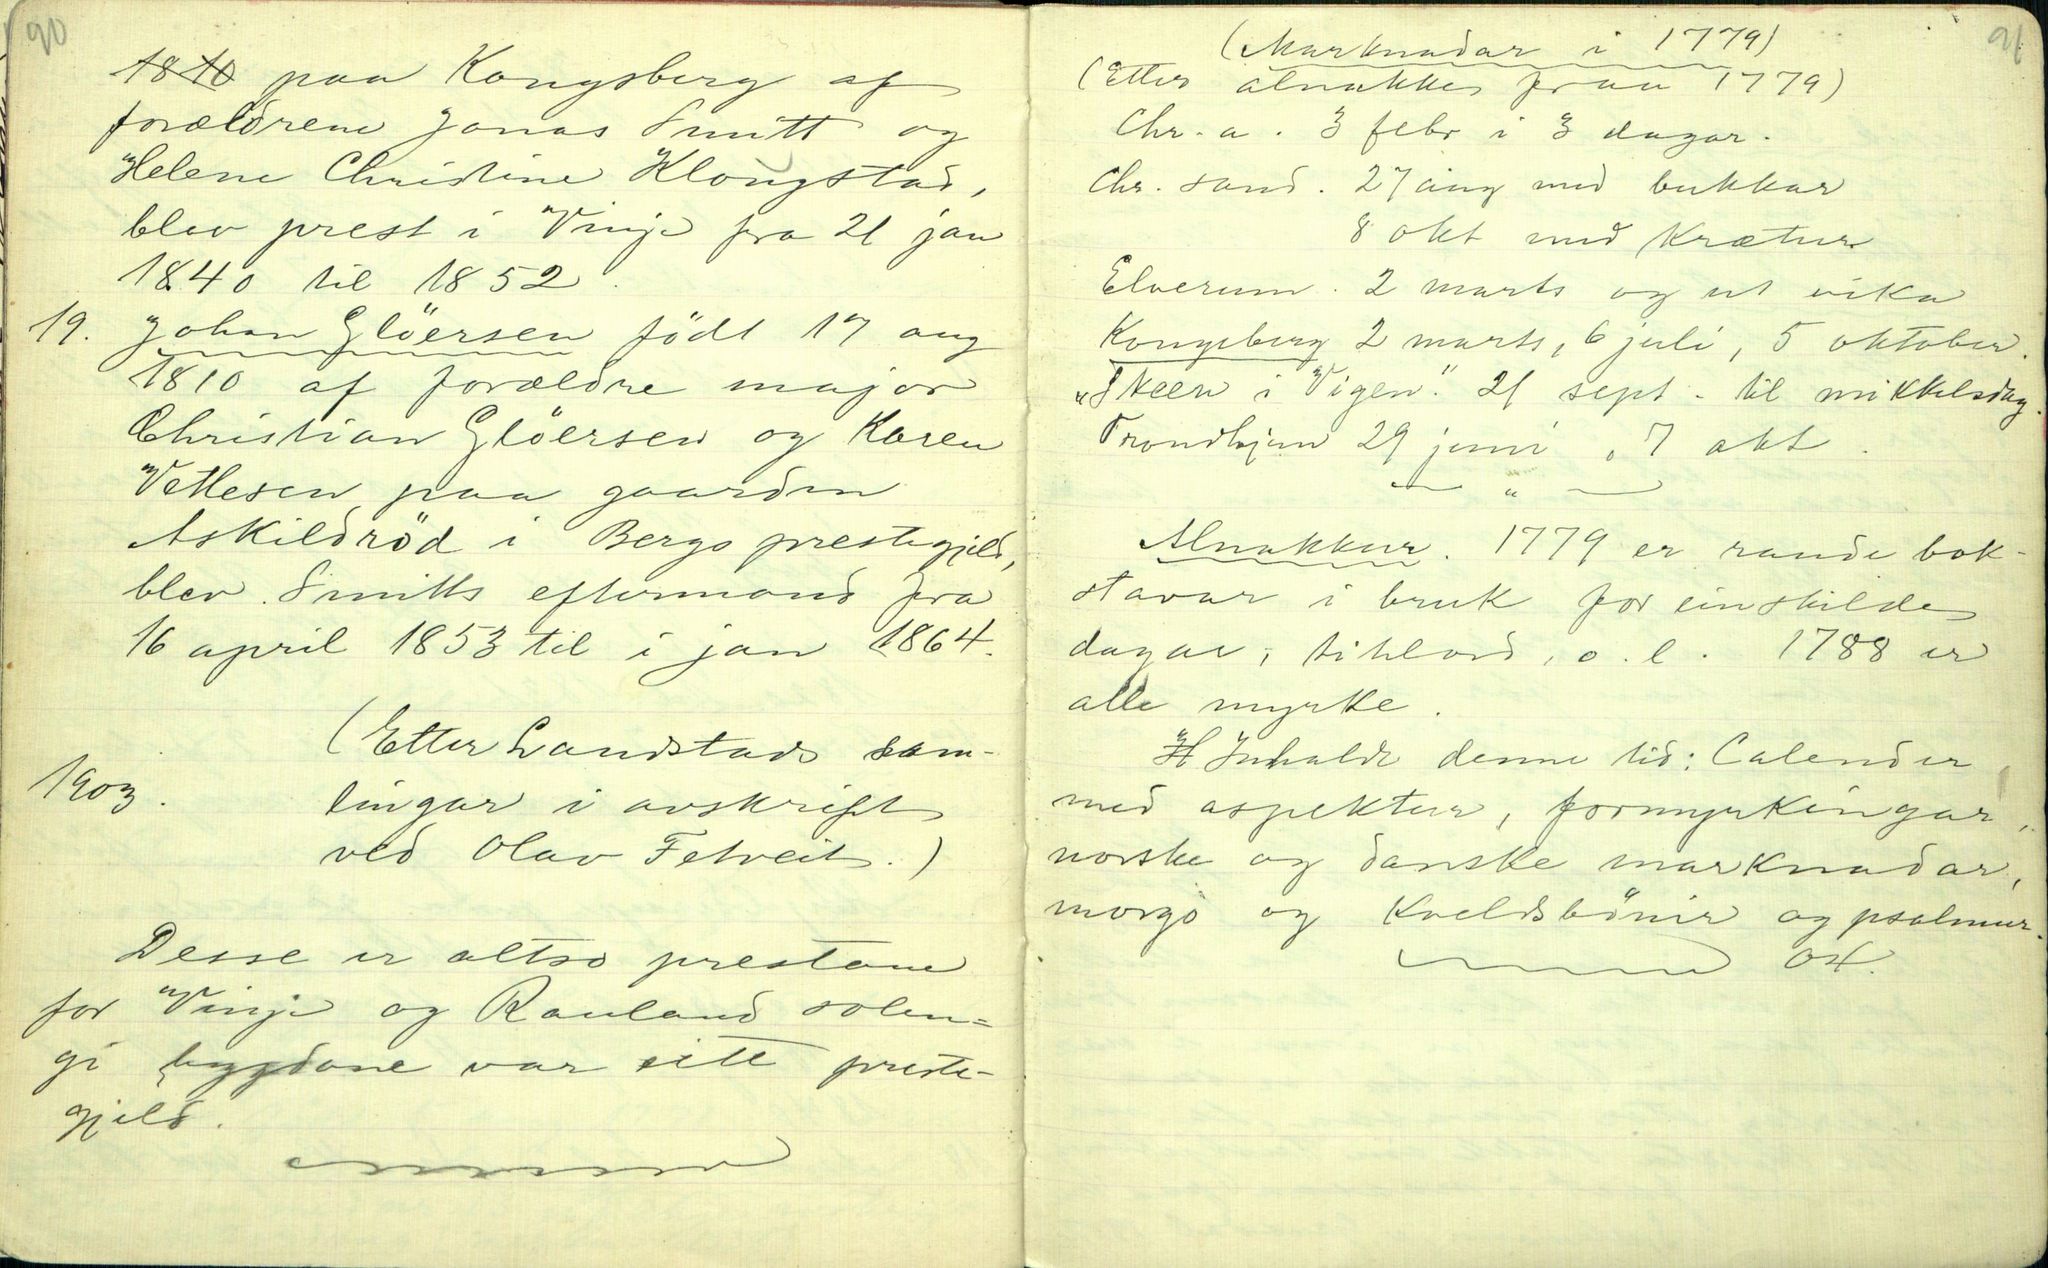 90
1810 paa Kongsberg af
forældrene Jonas Smitt og
Helene Christine Klougstad,
blev prest i Vinje fra 21 jan
1840 til 1852.
19. Johan Glöersen födt 17 aug
1810 af forældre major
Christian Glöersen og Karen
Vetlesen paa gaarden
Askildröd i Bergs prestegjeld,
blev Smitts eftermand fra
16 april 1853 til i jan 1864.
(Etter Landstads sam-
1903. lingar i avskrift
ved Olav Fetveit.)
Desse er altso prestane
for Vinje og Rauland solen=
gi bygdane var eitt preste-
gjeld.
91
(Marknadar i 1779)
(Etter alnakke fraa 1779)
Chr.a. 3 febr i 3 dagar.
Chr. sand. 27 aug med bukkar
8 okt med Krætur
Elverum. 2 marts og ut vika
Kongsberg 2 marts, 6 juli, 5 oktober.
"Skeen i Vigen". 21 sept. til mikkelsdag.
Trondhjem 29 juni, 7 okt.
— " —
Alnakkur. 1779 er raude bok-
stavar i bruk for einskilde
dagar, titelord, o.l. 1788 er
alle myrke.
H Inhalde denne tid: Calender
med aspektur, formyrkingar,
norske og danske marknadar,
morgo og Kveldsbönir og psalmur.
OH.